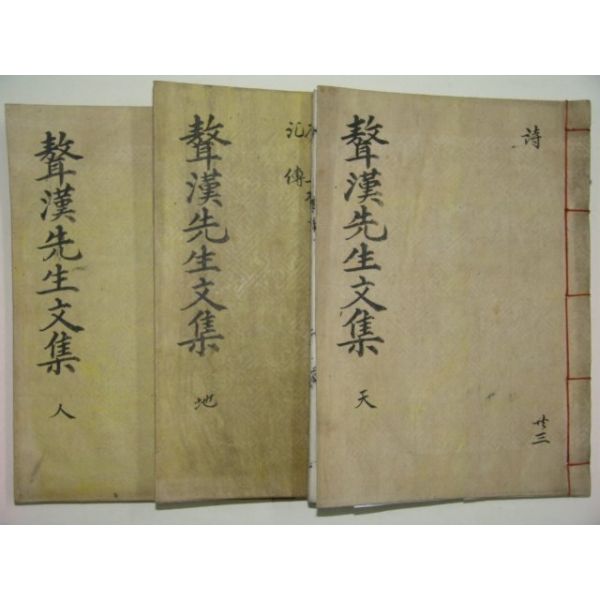 詩
共三
聱漢先生文集
天
記傳
聱漢先生文集
地
聱漢先生文集
人